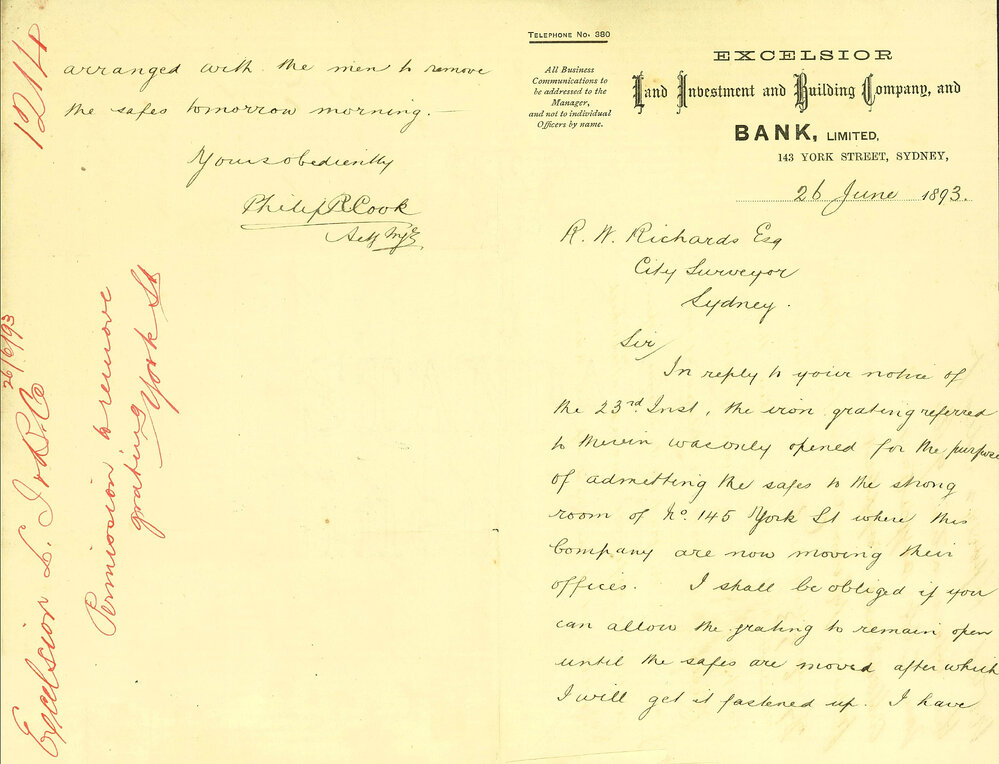 TELEPHONE NO. 380
All Business
Communications to
be addressed to the
Manager,
and not to individual
Officers by name.
EXCELSIOR
Land Investment and Building Company, and
BANK, LIMITED,
143 YORK STREET, SYDNEY,
26 June 1893.
R. W. Richards Esq
City Surveyor
Sydney.
Sir
In reply to your notice of
the 23rd Inst, the iron grating referred
to therein was only opened for the purpose
of admitting the safes to the strong
room of No. 145 York St where this
Company are now moving their
offices. I shall be obliged if you
can allow the grating to remain open
until the safes are moved after which
I will get it fastened up. I have
arranged with the men to remove
the safes tomorrow morning. —
Yours obediently
Philip R Cook
Actg Mgr
1214
Excelsior L. I & B. Co
26/6/93
Permission to remove
grating York St